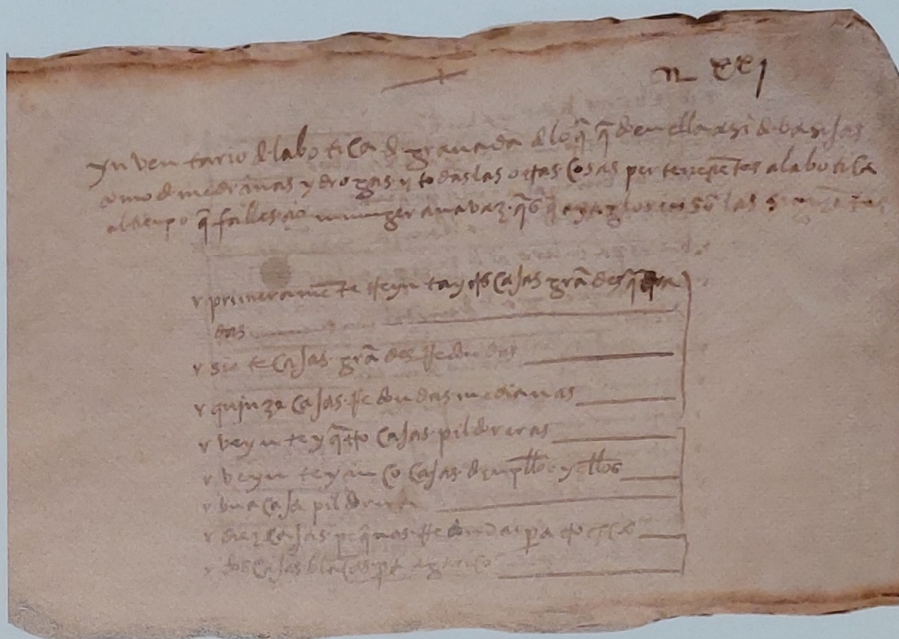 n xxj
ynventario de la botica de granada de lo q̃ q̃do en ella asi de basijas
como de medecinas y drogas y todas las otras cosas pertenecẽtes a la botica
al tienpo q̃ fallescio mi muger ana vaz q̃ las
v primeramẽte treynta y dos cajas grãdes
das
v siete cajas grãdes rredondas
v quinze cajas rredondas medianas
v veynte y q̃tro cajas pildoreras
v veynte y cinco cajas de
v una caja pildorera
v diez cajas peq̃nas rredondas pa
v dos cajas blãcas pa agarico